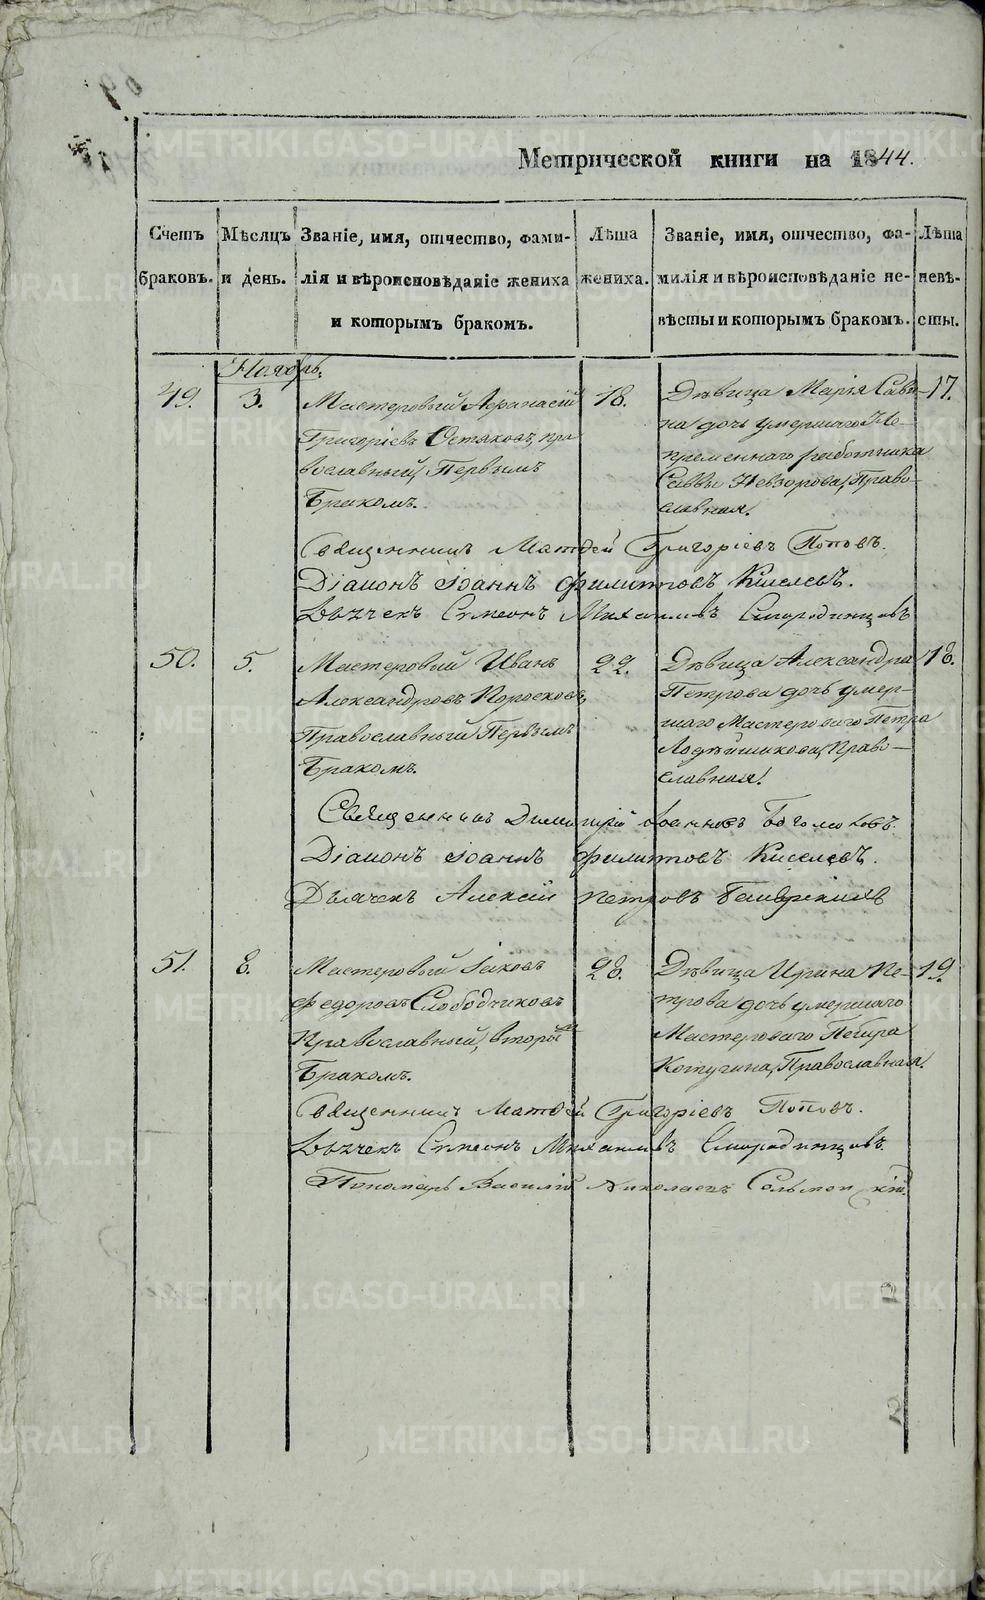 Метрической книги на 1844.
Счетъ браковъ.
Мѣсяцъ и день.
Званіе, имя, отчество, фами-
лія и вѣроисповѣданіе жениха
и которымъ бракомъ.
Лѣта жениха.
Званіе, имя, отчество, фа-
милія и вѣроисповѣданіе не-
вѣсты и которымъ бракомъ.
Лѣта невѣ-
сты.
Ноябрь.
49.
3.
Мастеровый Афанасій
Григоріевъ Остяковъ, пра
вославный, Первымъ
Бракомъ.
18.
Дѣвица Марія Сави-
на дочь умершаго Не-
премѣннаго работника
Саввы Невзорова, Право-
славная.
17.
Священникъ Матѳей Григоріевъ Поповъ.
Діаконъ Іоаннъ Филипповъ Киселевъ.
Дьячекъ Симеонъ Михаиловъ Смородинцовъ
50.
5.
Мастеровый Иванъ
Александровъ
Православный Первымъ
Бракомъ.
22.
Дѣвица Александра
Петрова дочь умер-
шаго Мастероваго Петра
Право-
славная.
18.
Священникъ Димитрій Іоанновъ
Діаконъ Іоаннъ Филипповъ Киселевъ.
Дьячекъ Алексій Петровъ
51.
8.
Мастеровый Іаковъ
Федоровъ Слободчиковъ
Православный, вторымъ
Бракомъ.
28.
Дѣвица Ирина Пе-
трова дочь умершаго
Мастероваго Петра
Котугина, Православная.
19.
Священникъ Матѳей Григоріевъ Поповъ.
Дьячекъ Симеонъ Михаиловъ Смородинцовъ.
Пономарь Василій Николаевъ
METRIKI.GASO-URAL.RU